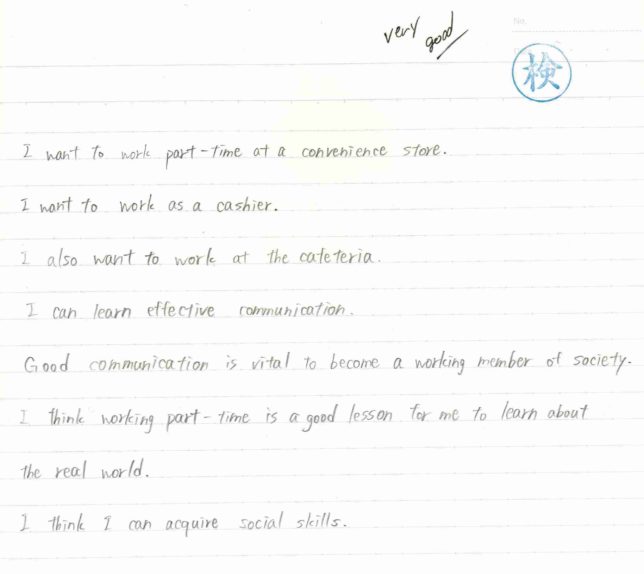 very good
No.
検
I want to work part-time at a convenience store.
I want to work as a cashier.
I also want to work at the cafeteria.
I can learn effective communication.
Good communication is vital to become a working member of society.
I think working part-time is a good lesson for me to learn about
the real world.
I think I can acquire social skills.